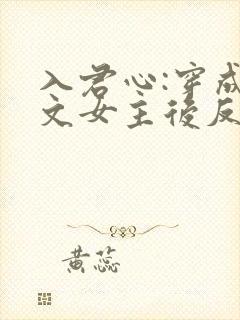 入君心:穿成
文女主後反
黄蕊